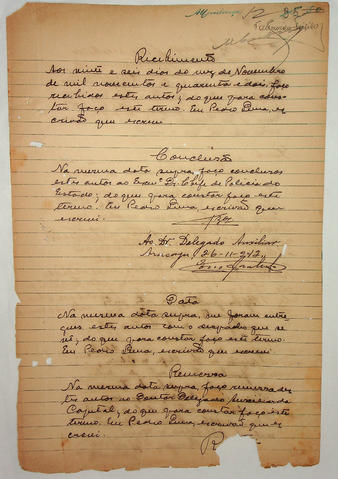 Recebimento
Aos vinte e seis dias do mez de Novembro
de mil novecentos e quarenta e dois, faço
recebidos estes autos; do que para cons-
tar faço este termo. Eu Pedro Lima, es-
crivão que escrevi
Conclusão
Na mesma data supra, faço conclusos
estes autos ao Exmº Dr. Chefe de Policia do
Estado; do que para constar faço este
termo. Eu Pedro Lima, escrivão que
escrevi.
Ao Dr. Delegado Auxiliar
Aracajú, 26-11-942
Data
Na mesma data supra, me foram entre-
gues estes autos com o despacho que se
vê; do que para constar faço este termo.
Eu Pedro Lima, escrivão que escrevi
Remessa
Na mesma data supra, faço remessa des-
tes autos ao Doutor Delegado Auxiliar da
Capital; do que para constar faço este
termo. Eu Pedro Lima, escrivão que es-
crevi.